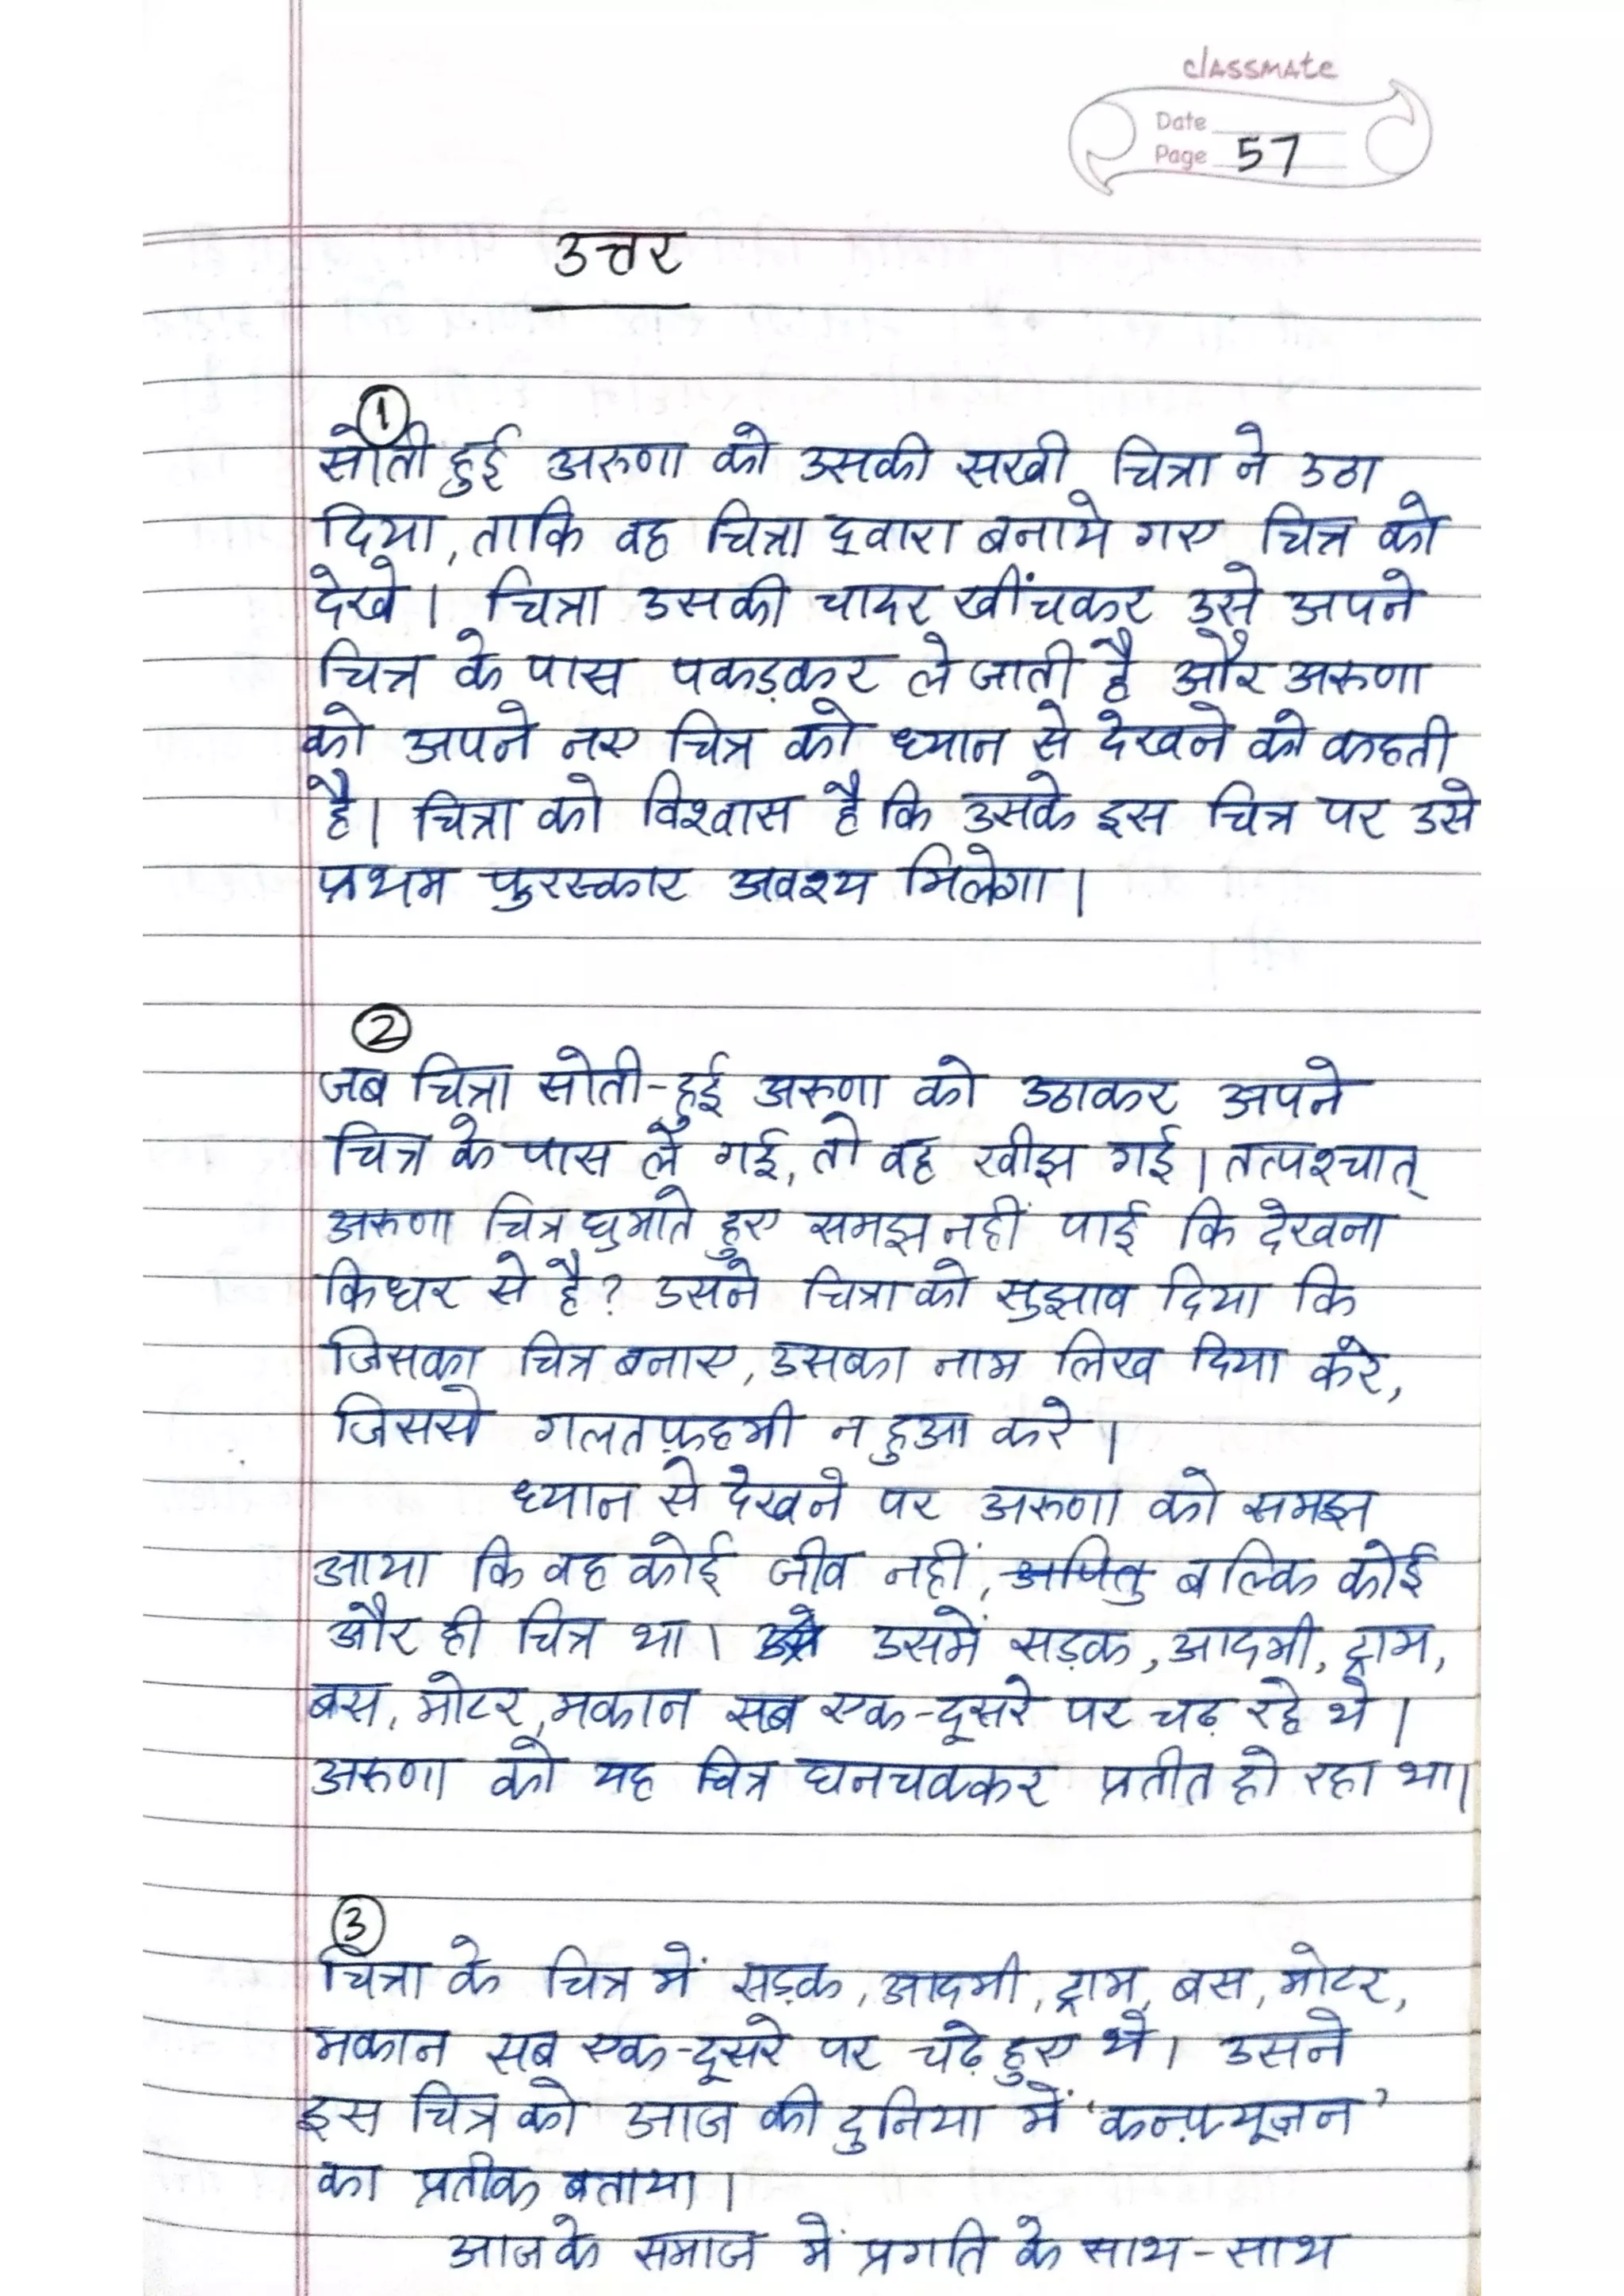 classmate
Date
Page 57
उत्तर
1
सोती हुई अरुणा को उसकी सखी चित्रा ने उठा
दिया, ताकि वह चित्रा द्वारा बनाये गए चित्र को
देखे। चित्रा उसकी चादर खींचकर उसे अपने
चित्र के पास पकड़कर ले जाती है और अरुणा
को अपने नए चित्र को ध्यान से देखने को कहती
है। चित्रा को विश्वास है कि उसके इस चित्र पर उसे
प्रथम पुरस्कार अवश्य मिलेगा।
2
जब चित्रा सोती-हुई अरुणा को उठाकर अपने
चित्र के पास ले गई, तो वह खीझ गई। तत्पश्चात्
अरुणा चित्र घुमाते हुए समझ नहीं पाई कि देखना
किधर से है? उसने चित्रा को सुझाव दिया कि
जिसका चित्र बनाए, उसका नाम लिख दिया करे,
जिससे गलतफ़हमी न हुआ करे।
ध्यान से देखने पर अरुणा को समझ
आया कि वह कोई जीव नहीं, अपितु बल्कि कोई
और ही चित्र था। उसमें सड़क, आदमी, ट्राम,
बस, मोटर, मकान सब एक-दूसरे पर चढ़ रहे थे।
अरुणा को यह चित्र घनचक्कर प्रतीत हो रहा था।
3
चित्रा के चित्र में सड़क, आदमी, ट्राम, बस, मोटर,
मकान सब एक-दूसरे पर चढ़े हुए थे। उसने
इस चित्र को आज की दुनिया में 'कन्फ़्यूज़न'
का प्रतीक बताया।
आज के समाज में प्रगति के साथ-साथ